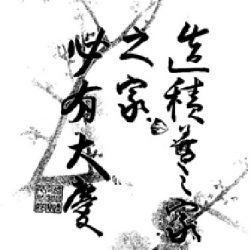 造積善之家
之家
必有大慶